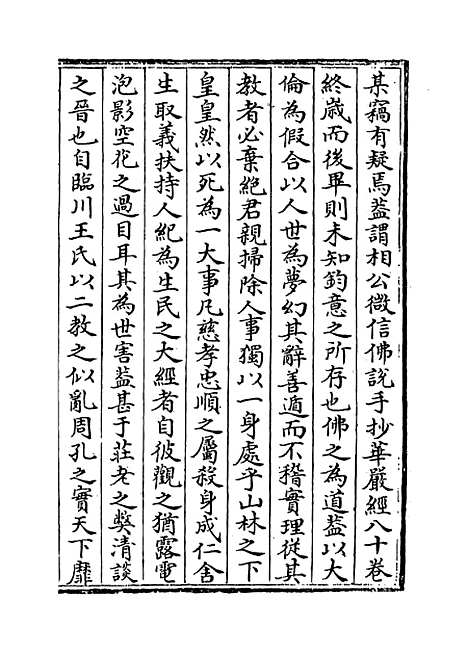 某竊有疑焉葢謂相公微信佛說手抄華嚴經八十卷
終歲而後畢則未知鈞意之所存也佛之為道葢以大
倫為假合以人世為夢幻其辭善遁而不稽實理從其
教者必棄絶君親掃除人事獨以一身處乎山林之下
皇皇然以死為一大事凡慈孝忠順之屬殺身成仁舍
生取義扶持人紀為生民之大經者自彼觀之猶露電
泡影空花之過目耳其為世害葢甚于莊老之獘清談
之晉也自臨川王氏以二教之似亂周孔之實天下靡